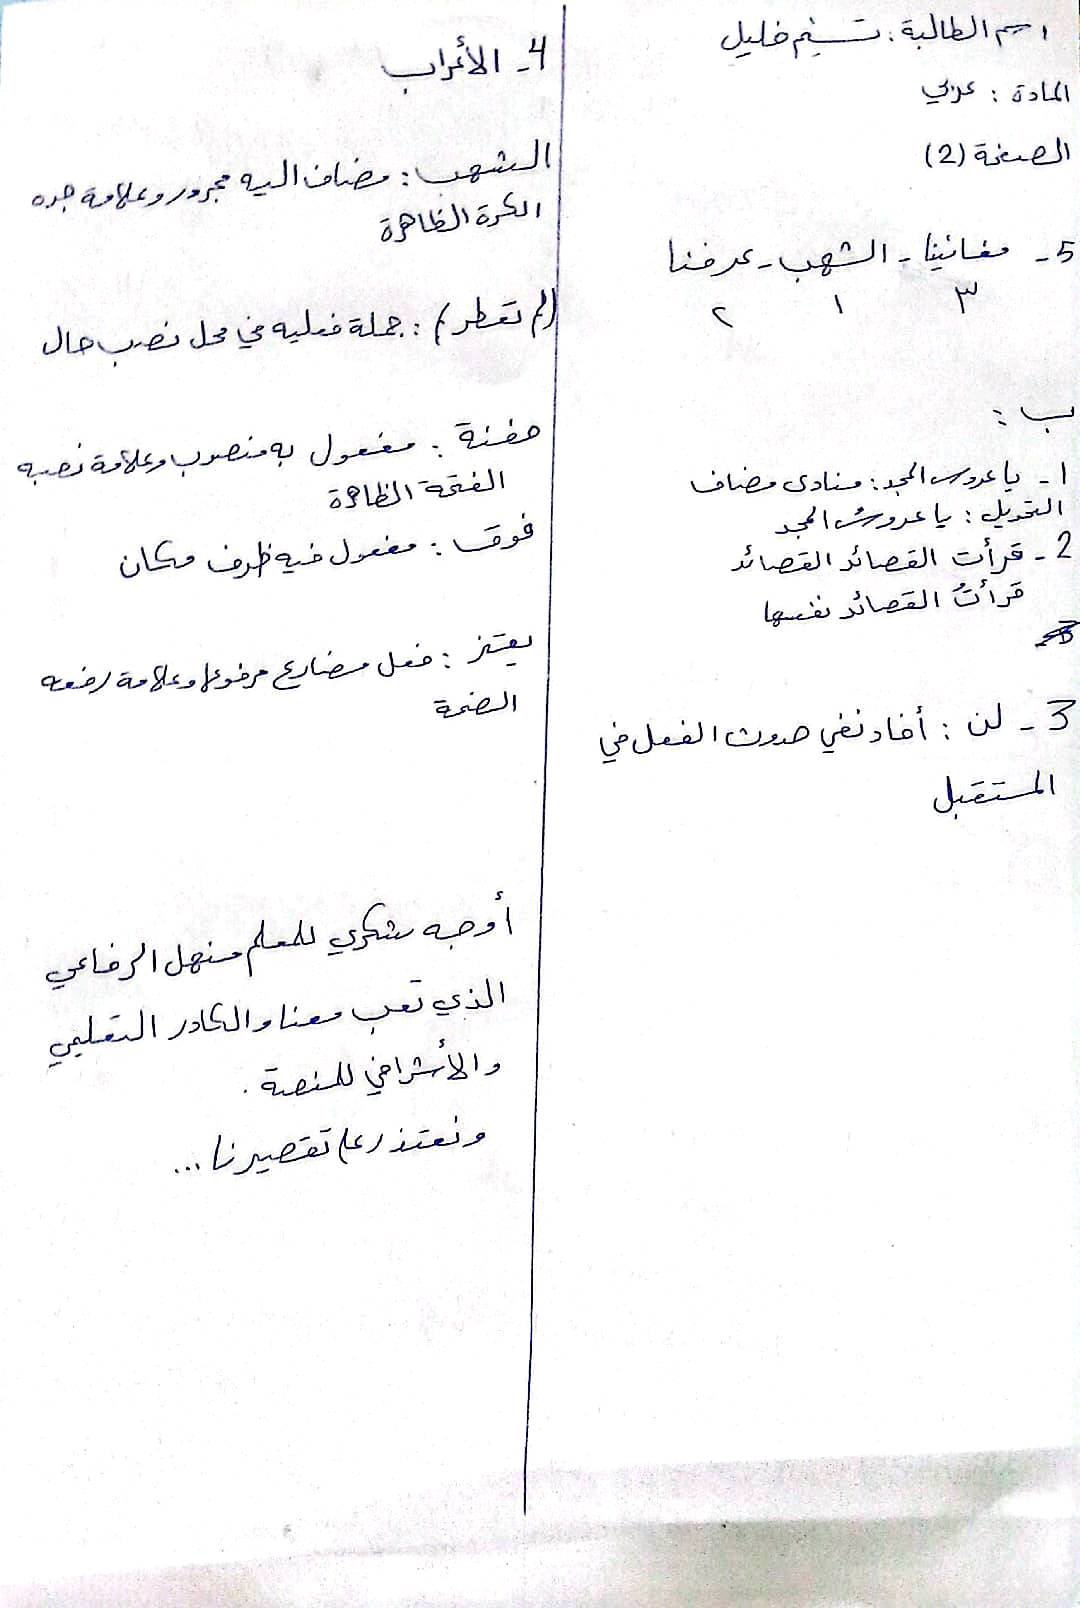 اسم الطالبة : تسنيم خليل
المادة : عربي
الصفحة (2)
5 - مغانينا - الشهب - عرفنا
٣ ١ ٢
ب :
1 - يا عروس المجد : منادى مضاف
التحويل : يا عروسُ المجد
2 - قرأت القصائد القصائد
قرأتُ القصائد نفسها
3 - لن : أفاد نفي حدوث الفعل في
المستقبل
4 - الأعراب
الشهب : مضاف اليه مجرور وعلامة جره
الكرة الظاهرة
(لم تعطر) : جملة فعليه في محل نصب حال
حفنة : مفعول به منصوب وعلامة نصبه
الفتحة الظاهرة
فوق : مفعول فيه ظرف مكان
يعتز : فعل مضارع مرفوع وعلامة رفعه
الضمة
أوجه شكري للمعلم منهل الرفاعي
الذي تعب معنا والكادر التعليمي
والأشرافي للمنصة .
ونعتذر على تقصيرنا ...